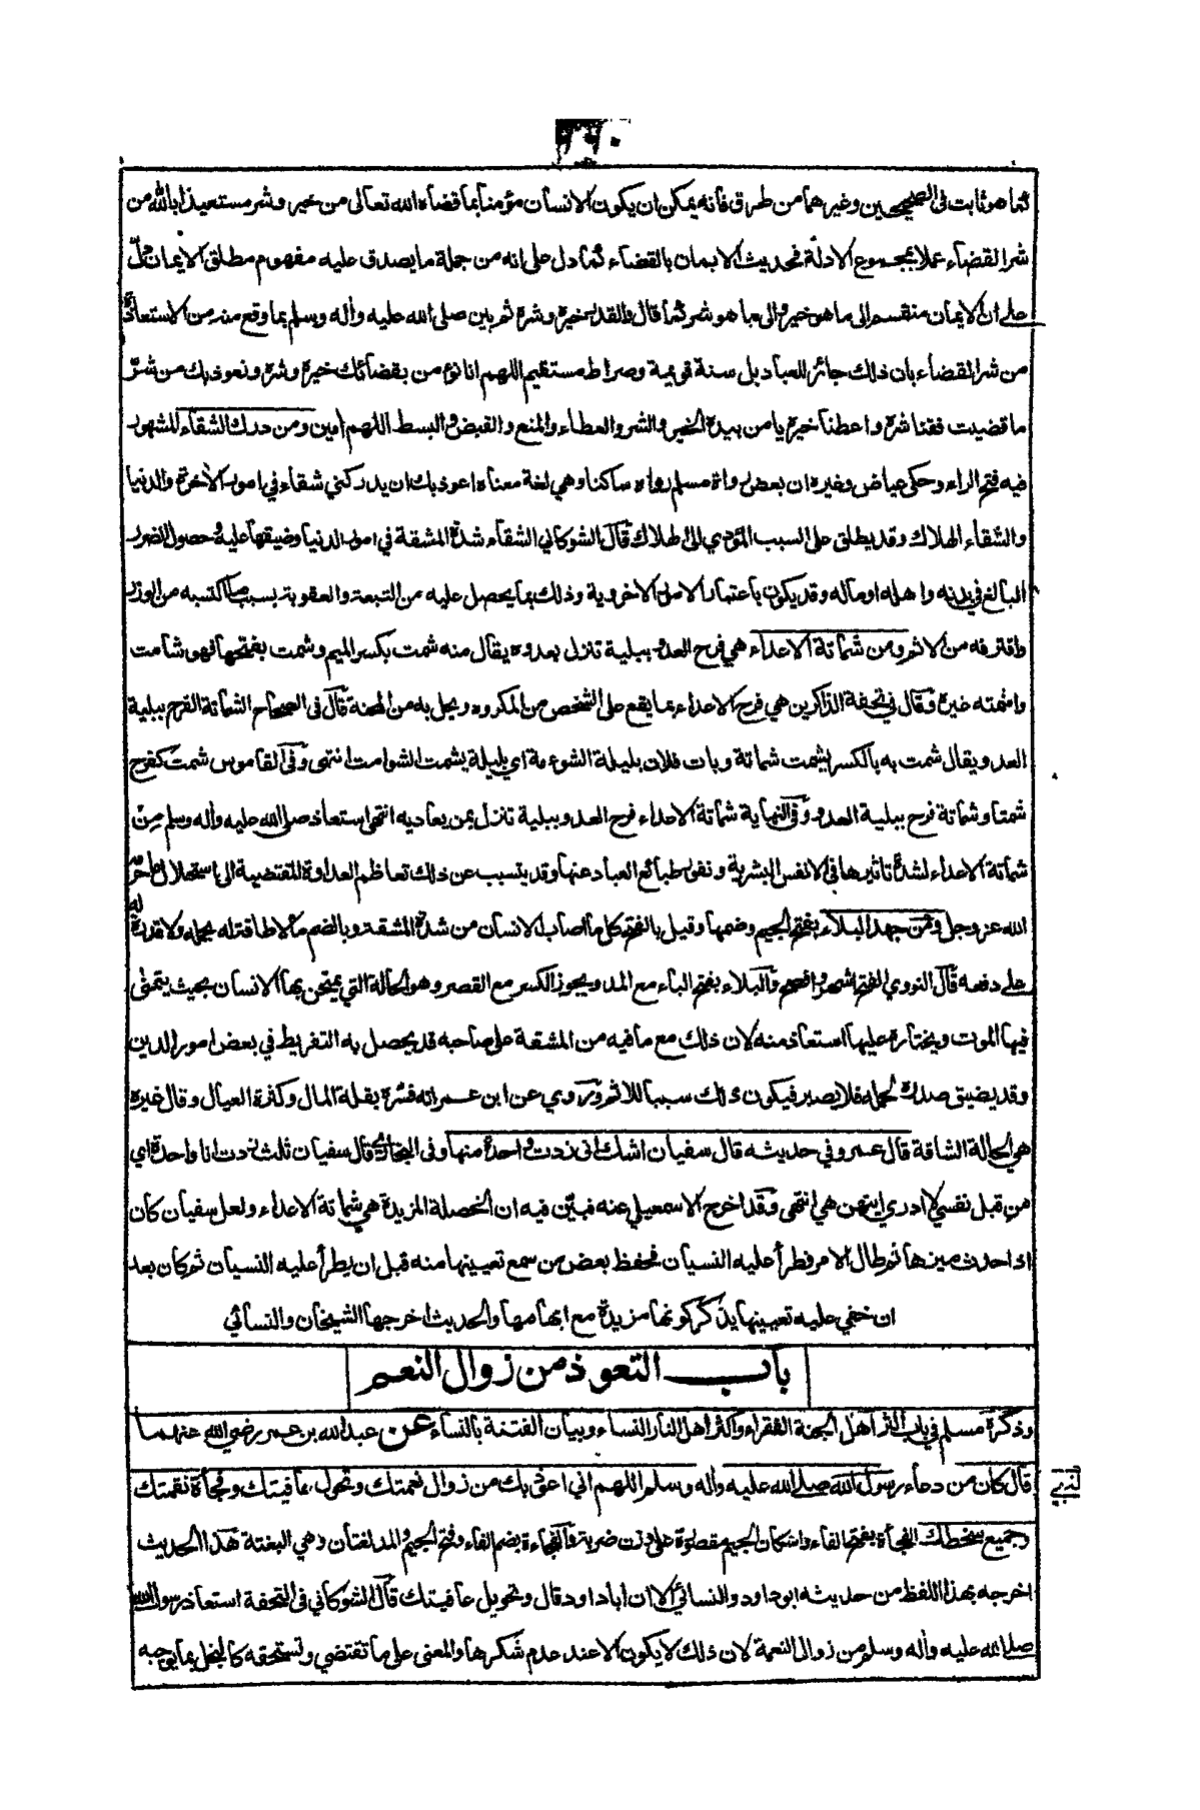 كما هو ثابت في الصحيحين وغيرهما من طرق فانه يمكن ان يكون الانسان مؤمنا بما قضاه الله تعالى من خير وشر مستعيذا بالله من
شر القضاء عملا بمجموع الادلة فحديث الايمان بالقضاء كما دل على انه من جملة ما يصدق عليه مفهوم مطلق الايمان دلّ
على ان الايمان منقسم الى ما هو خير والى ما هو شر كما قال والقدر خيره وشره ثم بين صلى الله عليه واله وسلم بما وقع منه من الاستعاذة
من شر القضاء بان ذلك جائز للعباد بل سنة قويمة وصراط مستقيم اللهم انا نؤمن بقضائك خيره وشره ونعوذ بك من شرّ
ما قضيت فقنا شره واعطنا خيره يا من بيده الخير والشر والعطاء والمنع والقبض والبسط اللهم امين ومن درك الشقاء المشهور
فيه فتح الراء وحكى عياض وغيره ان بعض رواة مسلم رواه ساكنا وهي لغة معناه اعوذ بك ان يدركني شقاء في امور الاخرة والدنيا
والشقاء الهلاك وقد يطلق على السبب المؤدي الى الهلاك قال الشوكاني الشقاء شدة المشقة في امور الدنيا وضيقها عليه وحصول الضرر
البالغ في بدنه واهله او ماله وقد يكون باعتبار الامور الاخروية وذلك بما يحصل عليه من التبعة والعقوبة بسبب ما اكتسبه من الوزر
واقترفه من الاثم ومن شماتة الاعداء هي فرح العدو ببلية تنزل بعدوه يقال منه شمت بكسر الميم وشمت بفتحها فهو شامت
واشمته غيره وقال في تحفة الذاكرين هي فرح الاعداء بما يقع على الشخص من المكروه ويحل به من المحنة قال في الصحاح الشماتة الفرح ببلية
العدو ويقال شمت به بالكسر يشمت شماتة وبات فلان بليلة الشوامت اي بليلة يشمت الشوامت انتهى وفي القاموس شمت كفرح
شمتا وشماتة فرح ببلية العدو وفي النهاية شماتة الاعداء فرح العدو ببلية تنزل بمن يعاديه انتهى استعاذ صلى الله عليه واله وسلم مِنْ
شماتة الاعداء لشدة تاثيرها في الانفس البشرية ونفور طبائع العباد عنها وقد يتسبب عن ذلك تعاظم العداوة المقتضية الى استحلال ما حرّمه
الله عز وجل ومن جهد البلاء بفتح الجيم وضمها وقيل بالفتح كل ما اصاب الانسان من شدة المشقة وبالضم ما لا طاقة له بحمله ولا قدرة له
على دفعه قال النووي الفتح اشهر وافصح والبلاء بفتح الباء مع المد ويجوز الكسر مع القصر وهو الحالة التي يمتحن بها الانسان بحيث يتمنى
فيها الموت ويختاره عليها استعاذ منه لان ذلك مع ما فيه من المشقة على صاحبه قد يحصل به التفريط في بعض امور الدين
وقد يضيق صدره بحمله فلا يصبر فيكون ذلك سببا للاثم وروي عن ابن عمر انه فسّره بقلة المال وكثرة العيال وقال غيره
هي الحالة الشاقة قال عمرو في حديثه قال سفيان اشك انى زدت واحدة منها وفي البخاري قال سفيان ثلث زدت انا واحدة اي
من قبل نفسي لا ادري ايتهن هي انتهى وقد اخرج الاسمعيلي عنه فبيّن فيه ان الخصلة المزيدة هي شماتة الاعداء ولعل سفيان كان
اذا حدث ميزها ثم طال الامر فطرأ عليه النسيان فحفظ بعض من سمع تعيينها منه قبل ان يطرأ عليه النسيان ثم كان بعد
ان خفي عليه تعيينها يذكر كونها مزيدة مع ابهامها والحديث اخرجها الشيخان والنسائي
باب التعوذ من زوال النعم
وذكره مسلم في باب اكثر اهل الجنة الفقراء واكثر اهل النار النساء وبيان الفتنة بالنساء عن عبد الله بن عمر رضي الله عنهما
قال كان من دعاء رسول الله صلى الله عليه واله وسلم اللهم اني اعوذ بك من زوال نعمتك وتحول عافيتك وفجأة نقمتك
وجميع سخطك الفجأة بفتح الفاء واسكان الجيم مقصورة على وزن ضربة والفجاءة بضم الفاء وفتح الجيم والمد لغتان وهي البغتة هذا الحديث
اخرجه بهذا اللفظ من حديثه ابو داود والنسائي الا ان ابا داود قال وتحويل عافيتك قال الشوكاني في التحفة استعاذ رسول الله
صلى الله عليه واله وسلم من زوال النعمة لان ذلك لا يكون الا عند عدم شكرها والمعنى على ما تقتضي وتستحقه كالبخل بما يوجبه